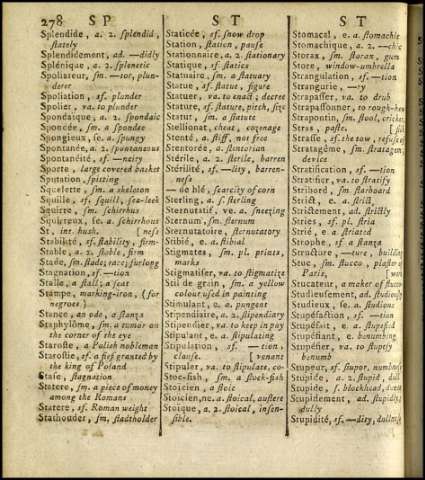 278 SP ST ST
Splendide, a. 2. splendid,
stately
Splendidement, ad. —didly
Splénique, a. 2. splenetic
Spoliateur, sm. —tor, plun-
derer
Spoliation, sf. plunder
Spolier, va. to plunder
Spondaïque, a. 2. spondaic
Spondée, sm. a spondee
Spongieux, se. a. spungy
Spontanée, a. 2. spontaneous
Spontanéité, sf. —neity
Sporte, large covered basket
Sputation, spitting
Squelette, sm. a skeleton
Squille, sf. squill, sea-leek
Squirre, sm. schirrhus
Squirreux, se. a. schirrhous
St, int. hush. [ness
Stabilité, sf. stability, firm-
Stable, a. 2. stable, firm
Stade, sm. stade; race; furlong
Stagnation, sf. —tion
Stalle, a stall; a seat
Stampe, marking-iron, (for
negroes)
Stance, an ode, a stanza
Staphylôme, sm. a tumor on
the corner of the eye
Staroste, a Polish nobleman
Starostie, sf. a fief granted by
the king of Poland
Stase, stagnation
Statere, sm. a piece of money
among the Romans
Statere, sf. Roman weight
Stathouder, sm. stadtholder
Staticée, sf. snow drop
Station, station, pause
Stationnaire, a. 2. stationary
Statique, sf. statics
Statuaire, sm. a statuary
Statue, sf. statue, figure
Statuer, va. to enact; decree
Stature, sf. stature, pitch, size
Statut, sm. a statute
Stellionat, cheat, cozenage
Stenté, a. stiff, not free
Stentorée, a. stentorian
Stérile, a. 2. sterile, barren
Stérilité, sf. —ity, barren-
ness
— de blé, scarcity of corn
Sterling, a. s. sterling
Sternutatif, ve. a. sneezing
Sternum, sm. sternum
Sternutatoire, sternutatory
Stibié, e. a. stibial
Stigmates, sm. pl. prints,
marks
Stigmatiser, va. to stigmatize
Stil de grain, sm. a yellow
colour used in painting
Stimulant, e. a. pungent
Stipendiaire, a. 2. stipendiary
Stipendier, va. to keep in pay
Stipulant, e. a. stipulating
Stipulation, sf. —tion,
clause. [venant
Stipuler, va. to stipulate, co-
Stoc-fish, sm. a stock-fish
Stoicien, a stoic
Stoicien, ne. a. stoical, austere
Stoïque, a. 2. stoical, insen-
sible.
Stomacal, e. a. stomachic
Stomachique, a. 2. —chic
Storax, sm. storax, gum
Store, window-umbrella
Strangulation, sf. —tion
Strangurie, —ry
Strapasser, va. to drub
Strapassonner, to rough-hew
Strapontin, sm. stool, cricket
Stras, paste, [silk
Strasse, sf. the tow, refuse of
Stratagême, sm. stratagem,
device
Stratification, sf. —tion
Stratifier, va. to stratify
Stribord, sm. starboard
Strict, e. a. strict,
Strictement, ad. strictly
Stries, sf. pl. stria
Strié, e. a. striated
Strophe, sf. a stanza
Structure, —ture, building
Stuc, sm. stucco, plaster of
Paris,
Stucateur, a maker of stucco
Studieusement, ad. studiously
Studieux, se. a. studious
Stupéfaction, sf. —tion
Stupéfait, e. a. stupefied
Stupéfiant, e. benumbing
Stupéfier, va. to stupify
benumb
Stupeur, sf. stupor, numbness
Stupide, a. 2. stupid, dull
Stupide, s. blockhead, dunce
Stupidement, ad. stupidly,
dully
Stupidité, sf. —dity, dullness